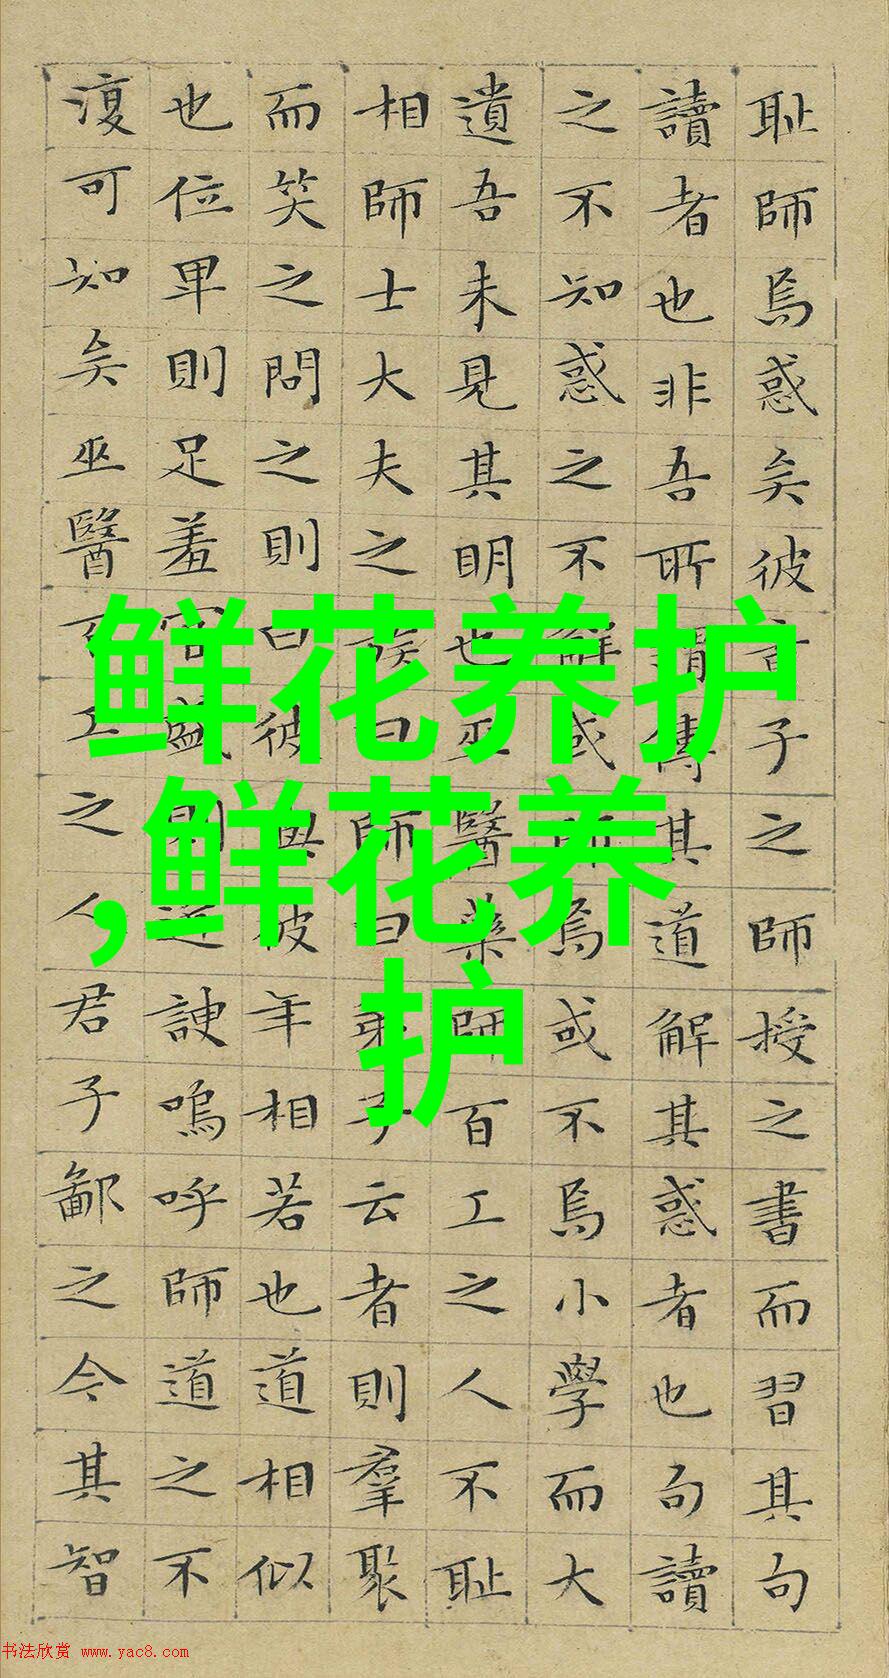 耻師焉惑矣彼童子之師授之書而習其句
讀者也非吾所謂傳其道解其惑者也句讀
之不知惑之不解或師焉或不焉小學而大
遺吾未見其明也巫醫藥師百工之人不耻
相師士大夫之族曰師曰弟子云者則羣聚
而笑之問之則曰彼與彼年相若也道相似
也位卑則足羞官盛則近諛嗚呼師道之不
復可知矣巫醫百工之人君子鄙之今其智
鲜花养护
,鲜花养
护
书法欣赏 www.yac8.com